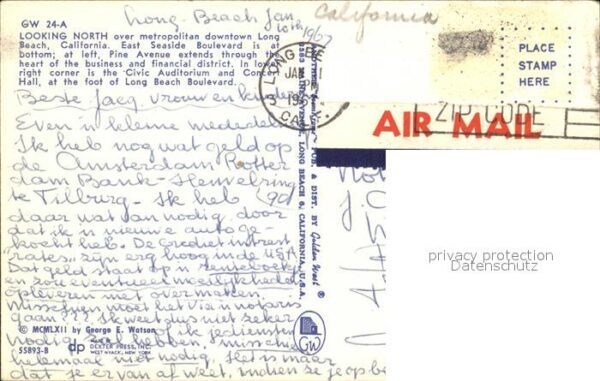 Long. Beach Jan California
10th 1967
GW 24-A
LOOKING NORTH over metropolitan downtown Long
Beach, California. East Seaside Boulevard is at
bottom; at left, Pine Avenue extends through the
heart of the business and financial district. In lower
right corner is the Civic Auditorium and Concert
Hall, at the foot of Long Beach Boulevard.
LONG BE
JAN 11
PM
CAL
PLACE
STAMP
HERE
ZIP CODE
AIR MAIL
Beste Jacq vrouw en kinderen
Even'n kleine mededel
Ik heb nog wat geld op
de Amsterdam Rotter
dam Bank-Heuvelring
te Tilburg - Ik heb (90)
daar wat van nodig door
dat ik 'n nieuwe auto ge-
kocht heb. De Crediet intrest
"rates" zijn erg hoog in de USA
Dat geld staat op 'n
en zou eventueel moeilijkheden
opleveren met overmaken.
Misschien moet het via 'n notaris
gaan??? Ik weet dus niet zeker
of ik je diensten
nodig zal hebben, misschien
helemaal niet nodig, het is maar
dat je er van af weet, indien ze je op be
© MCMLXII by George E. Watson
dp DEXTER PRESS, INC.
WEST NYACK, NEW YORK
55893-B
PUB. & DIST. BY Golden West ®
LONG BEACH 6, CALIFORNIA, U.S.A.
GW
privacy protection
Datenschutz